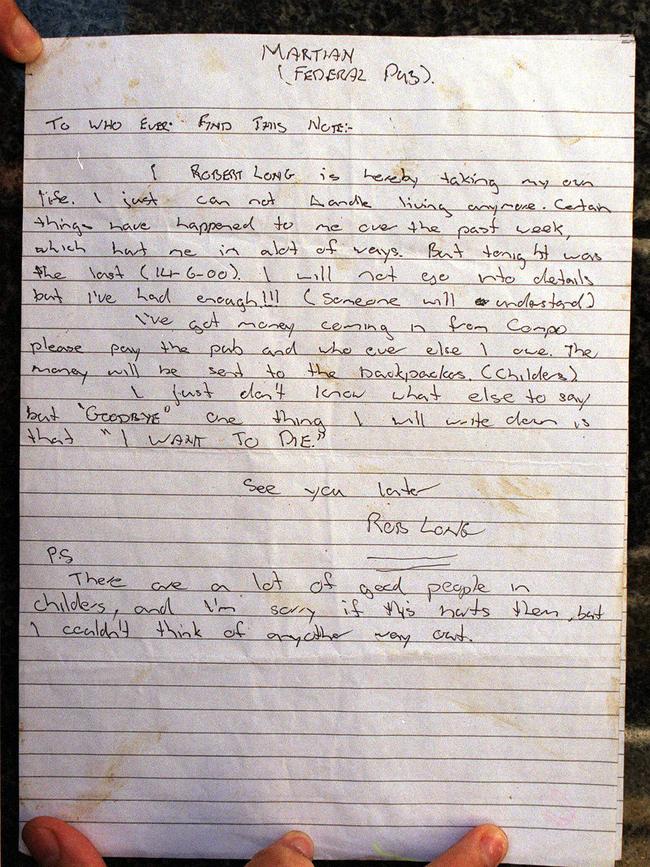 MARTIAN
(FEDERAL PUB).
TO WHO EVER FIND THIS NOTE:-
I ROBERT LONG is hereby taking my own
life. I just can not handle living anymore. Certain
things have happened to me over the past week,
which hurt me in alot of ways. But tonight was
the last (14-6-00). I will not go into details
but I've had enough!!! (Someone will understand)
I've got money coming in from Compo
please pay the pub and who ever else I owe. The
money will be sent to the backpackas. (Childers)
I just don't know what else to say
but "GOODBYE" one thing I will write down is
that "I WANT TO DIE."
See you later
ROB LONG
P.S
There are a lot of good people in
childers, and I'm sorry if this hurts them, but
I couldn't think of anyother way out.